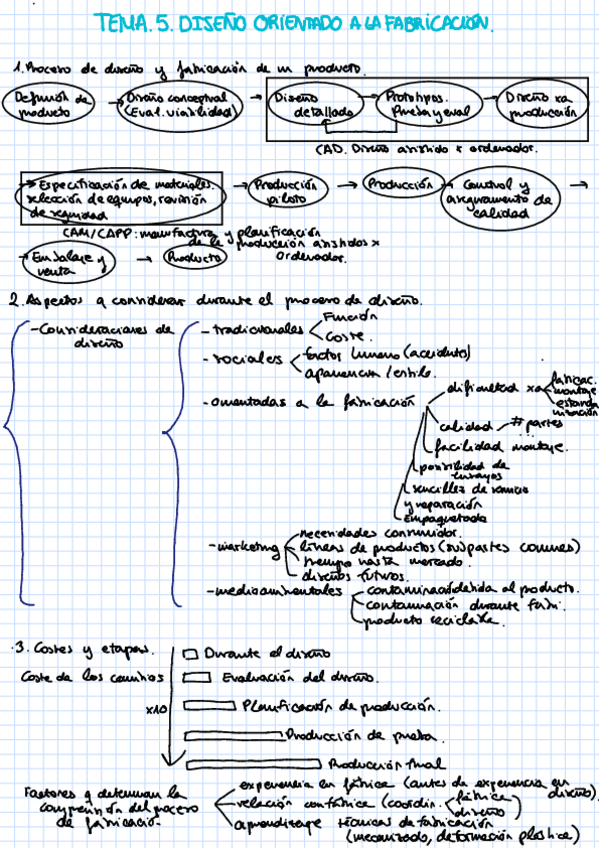 TEMA. 5. DISEÑO ORIENTADO A LA FABRICACIÓN.
1. Proceso de diseño y fabricación de un producto.
Definición de producto
Diseño conceptual (Eval. viabilidad)
Diseño detallado
Prototipos. Prueba y eval
Diseño xa producción
CAD. Diseño asistido x ordenador.
Especificación de materiales, selección de equipos, revisión de seguridad
Producción piloto
Producción
Control y aseguramiento de calidad
CAM/CAPP: manufactura y planificación de la producción asistidos x ordenador.
Embalaje y venta
Producto
2. Aspectos q considerar durante el proceso de diseño.
- Consideraciones de diseño
- tradicionales
Función
Coste.
- sociales
factor humano (accidentes)
apariencia / estilo.
- orientadas a la fabricación
dificultad xa
fabricac.
montaje
estandarización
calidad
# partes
...
facilidad montaje.
posibilidad de ensayos
sencillez de servicio y reparación
empaquetado
- marketing
necesidades consumidor.
líneas de productos (subpartes comunes)
tiempo hasta mercado.
diseños futuros.
- medioambientales
contaminación debida al producto.
contaminación durante fabri.
producto reciclable.
3. Costes y etapas.
Coste de los cambios
x10
Durante el diseño
Evaluación del diseño.
Planificación de producción.
Producción de prueba.
Producción final
Factores q determinan la comprensión del proceso de fabricación.
experiencia en fábrica (antes de experiencia en diseño).
relación con fábrica (coordin.
fábrica
diseño
)
aprendizaje técnicas de fabricación (mecanizado, deformación plástica)